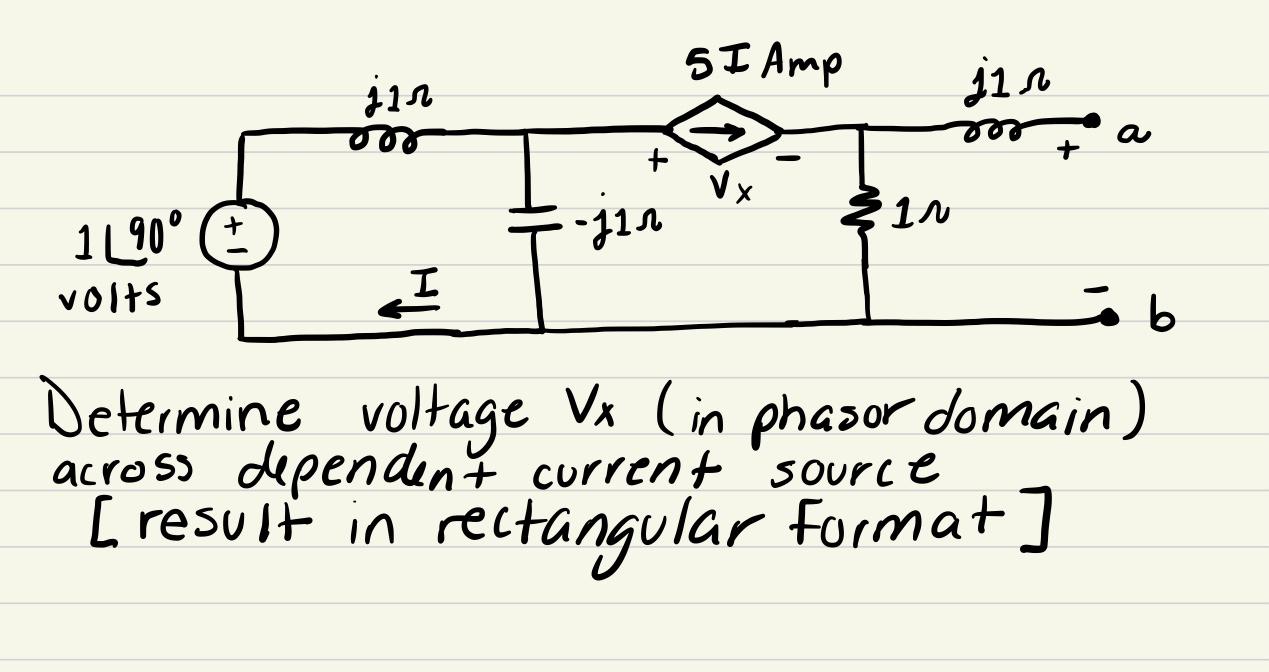 5I Amp
j1Ω
j1Ω
+ -
Vx
+ a
1∠90°
volts
+
-
-j1Ω
1Ω
I
-
b
Determine voltage Vx (in phasor domain)
across dependent current source
[result in rectangular format]